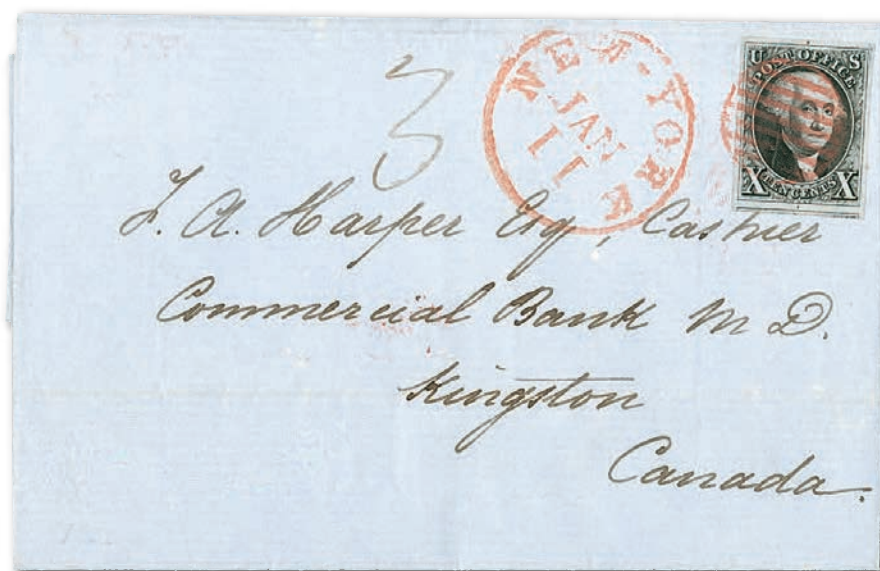 3
NEW-YORK
JAN
11
U S
POST OFFICE
X TEN CENTS X
F. A. Harper Esq, Cashier
Commercial Bank M D.
Kingston
Canada.